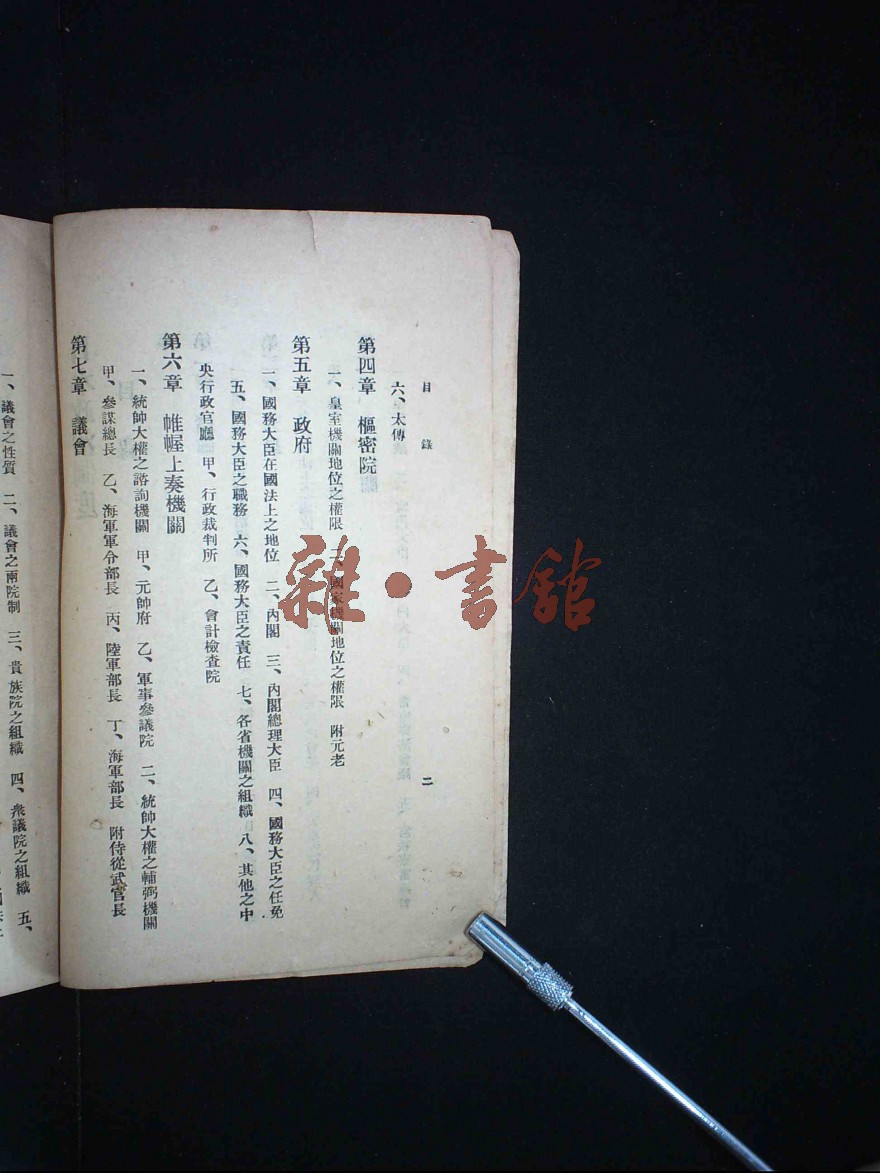 目錄 二
六、太傳
第四章 樞密院
一、皇室機關地位之權限 二、國家機關地位之權限 附元老
第五章 政府
一、國務大臣在國法上之地位 二、內閣 三、內閣總理大臣 四、國務大臣之任免
五、國務大臣之職務 六、國務大臣之責任 七、各省機關之組織 八、其他之中
央行政官廳 甲、行政裁判所 乙、會計檢查院
第六章 帷幄上奏機關
一、統帥大權之諮詢機關 甲、元帥府 乙、軍事參議院 二、統帥大權之輔弼機關
甲、參謀總長 乙、海軍軍令部長 丙、陸軍部長 丁、海軍部長 附侍從武官長
第七章 議會
一、議會之性質 二、議會之兩院制 三、貴族院之組織 四、衆議院之組織 五、
雜·書館